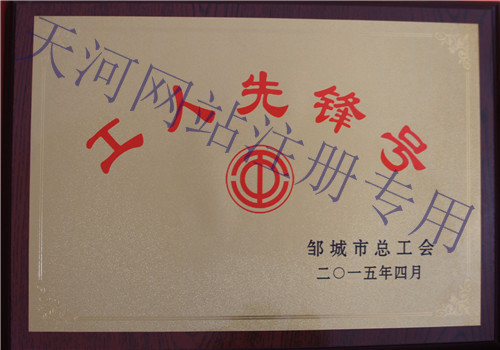 工人先锋号
邹城市总工会
二〇一五年四月
天河网站注册专用